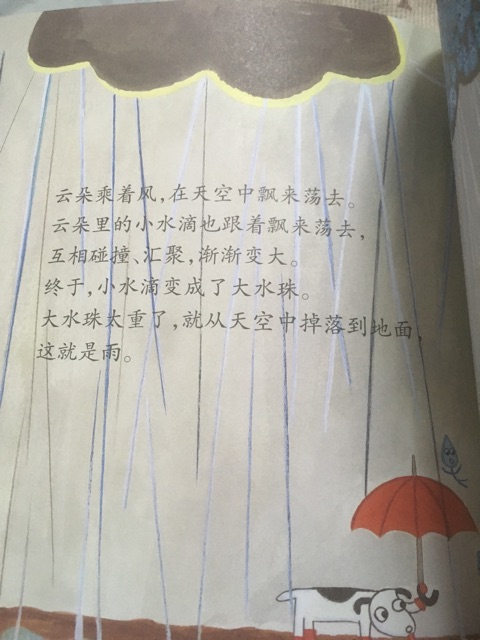 云朵乘着风,在天空中飘来荡去。
云朵里的小水滴也跟着飘来荡去,
互相碰撞、汇聚,渐渐变大。
终于,小水滴变成了大水珠。
大水珠太重了,就从天空中掉落到地面,
这就是雨。